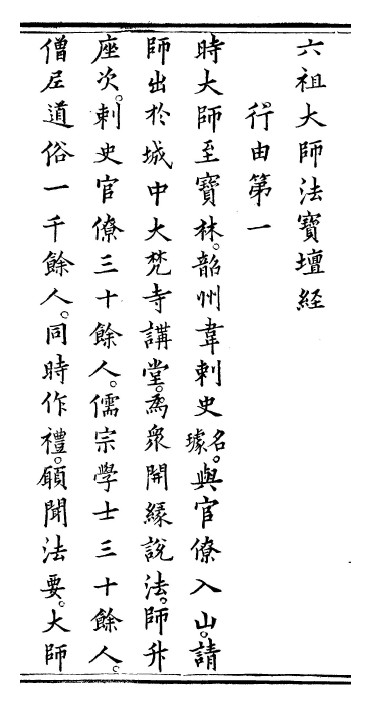 六祖大師法寶壇經
行由第一
時大師至寶林。韶州韋刺史名璩。與官僚入山。請
師出於城中大梵寺講堂。為眾開緣說法。師升
座次。刺史官僚三十餘人。儒宗學士三十餘人。
僧尼道俗一千餘人。同時作禮。願聞法要。大師